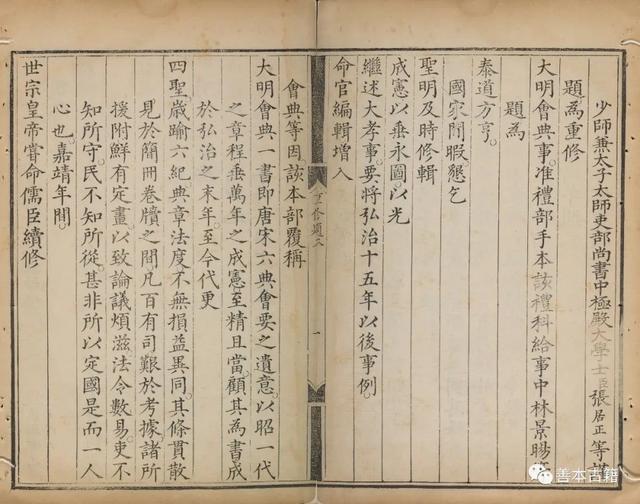 少師兼太子太師吏部尚書中極殿大學士臣張居正等謹
題為重修
大明會典事。准禮部手本該禮科給事中林景暘
題為
泰道方亨。
國家閒暇懇乞
聖明及時修輯
成憲以垂永圖。以光
繼述大孝事。要將弘治十五年以後事例。
命官編輯增入
會典等因。該本部覆稱
大明會典一書即唐宋六典會要之遺意。以昭一代
之章程。垂萬年之成憲至精且當。顧其為書成
於弘治之末年。至今代更
四聖。歲踰六紀。典章法度。不無損益異同。其條貫散
見於簡冊卷牘之間。凡百有司艱於考據。諸所
援附。鮮有定畫。以致論議煩滋。法令數易。吏不
知所守。民不知所從。甚非所以定國是而一人
心也。嘉靖年間。
世宗皇帝嘗命儒臣續修
重修題本
一
善本古籍